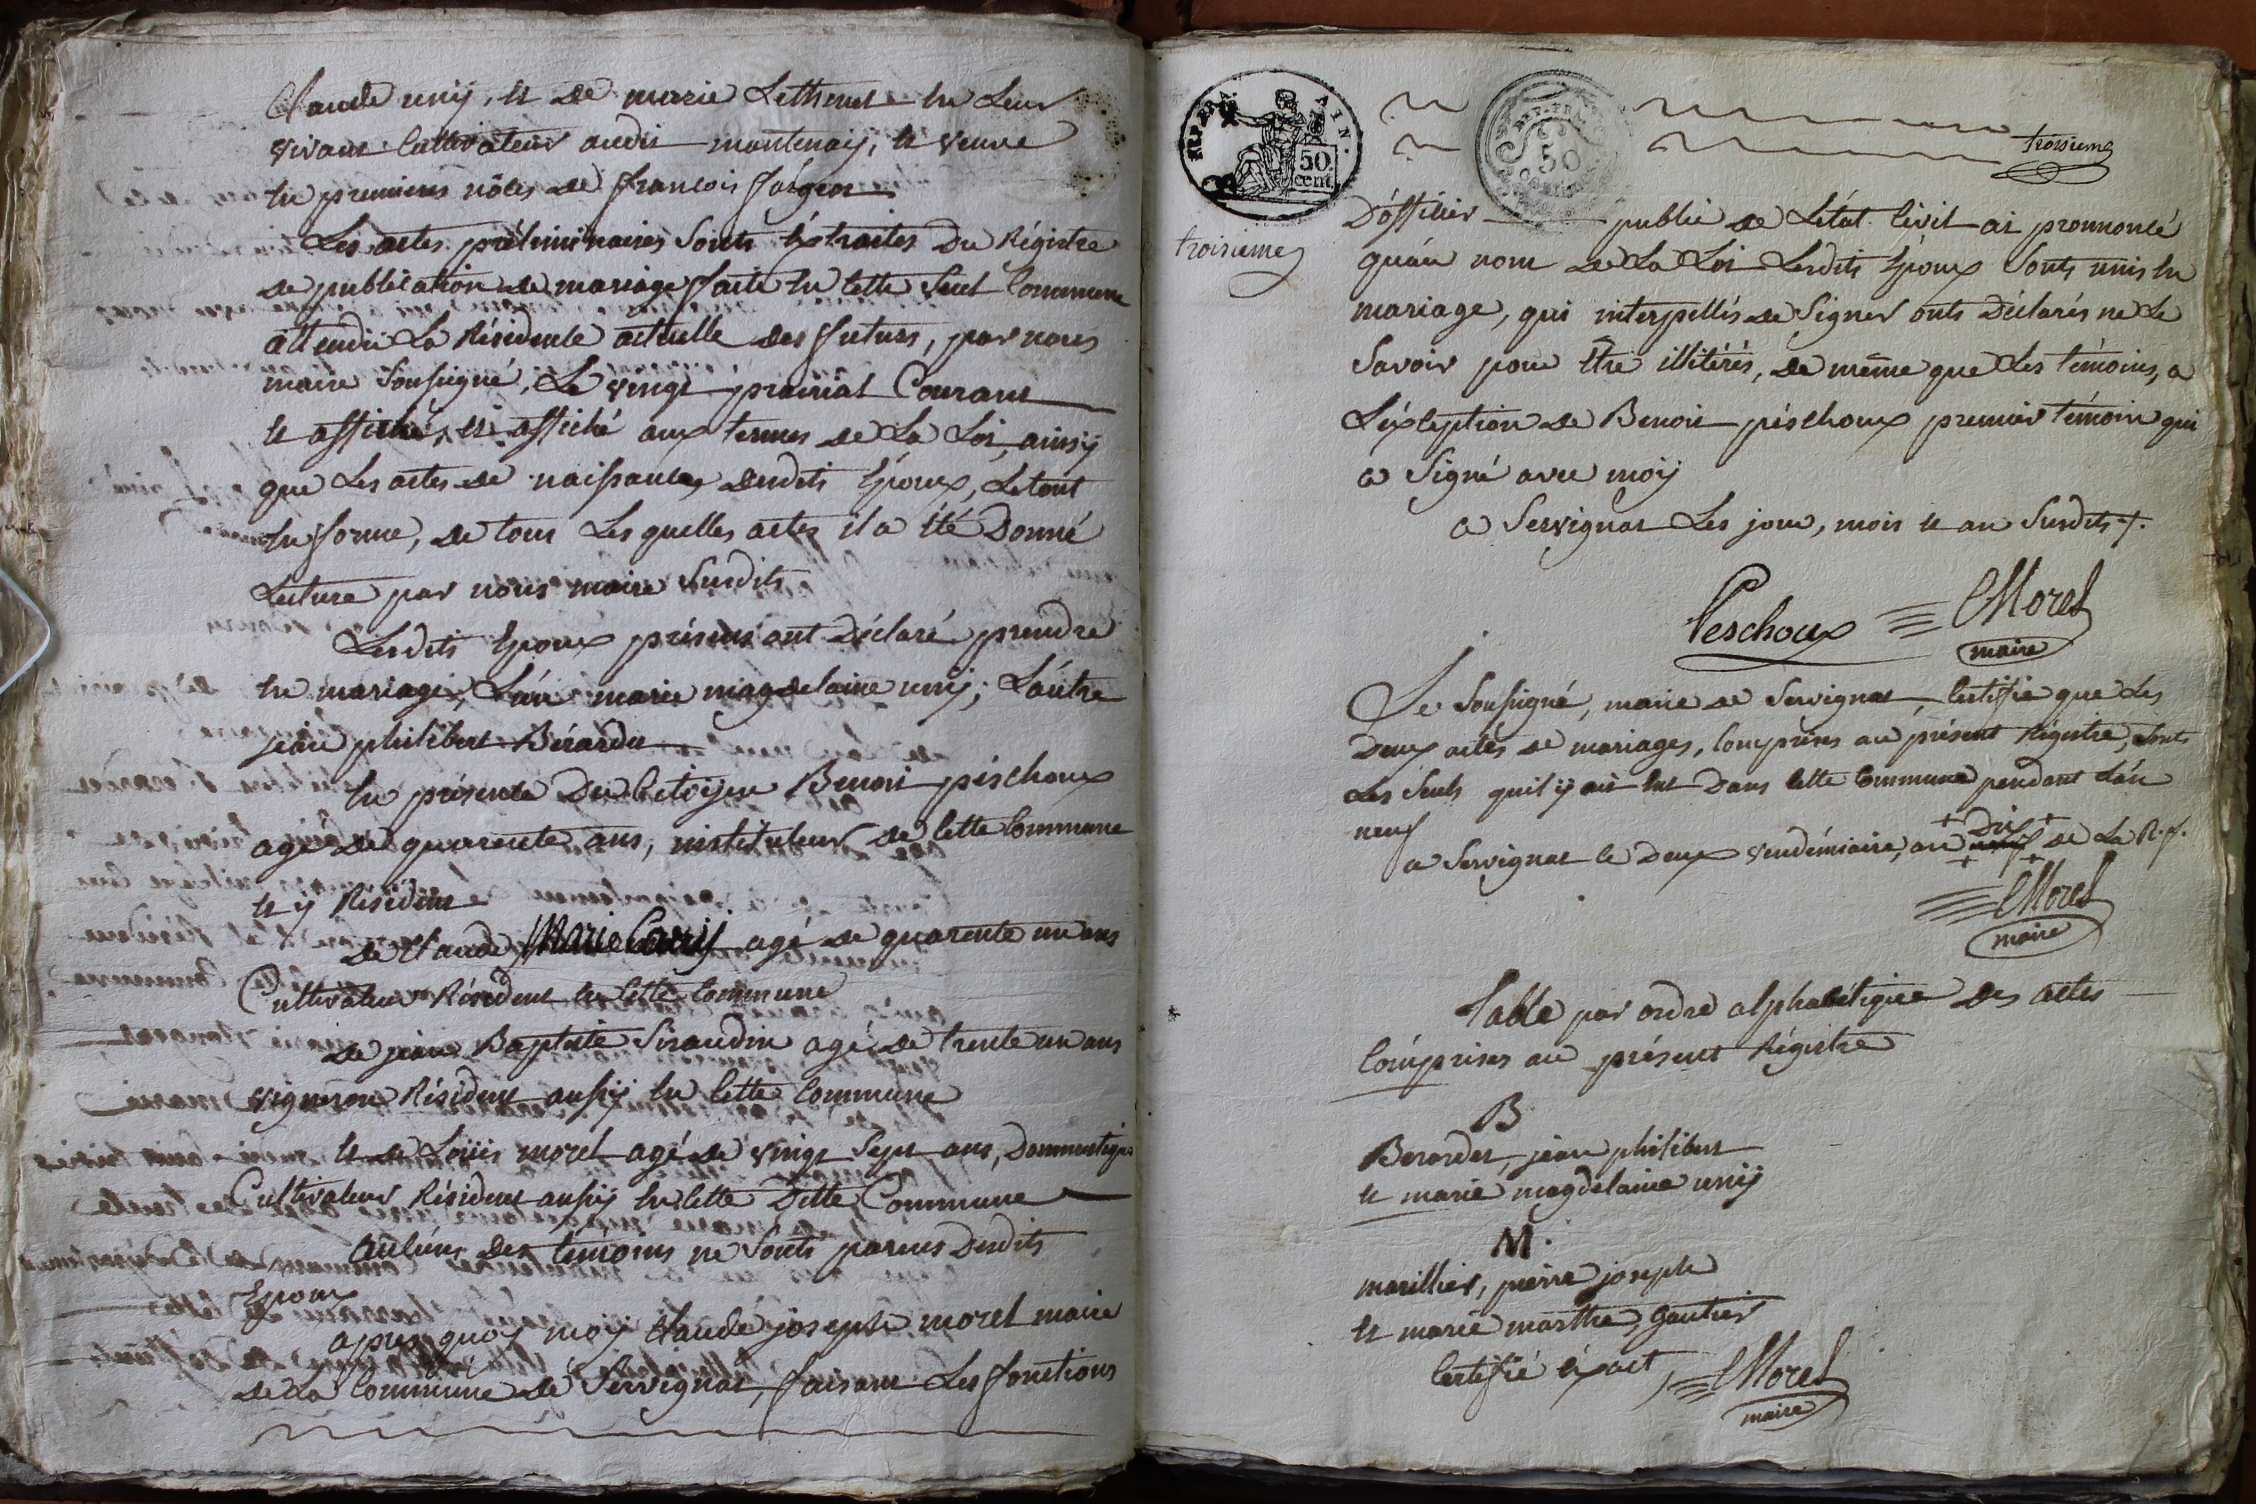 Claude uny, et de marie Lethenet en Leur
vivant Cultivateur audit montenay, et veuve
en premieres nôces de francois forgeot
Les actes préliminaires Sonts Extraites Du Régistre
de publication de mariage faite en Cette Seul Commune
attendu La Résidence actuelle des futurs, par nous
maire Soussigné, Le vingt prairial Courant
et affiché aux termes de La Loi, ainsy
que Les actes de naissances desdits Epoux, Le tout
en forme, de tous Les quelles actes il a Eté Donné
Lecture par nous maire Susdits
Lesdits Epoux présens ont Déclaré prendre
en mariage, L'un marie magdelaine uny; L'autre
jean philibert Bérardet
En présence Du Citoÿen Benoit péschoux
agé de quarente ans, instituteur de Cette Commune
et y Résident
de Claude Marie agé de quarente un ans
Cultivateur Résident en Cette Commune
de jean Baptiste Siraudin agé de trente un ans
vigneron Résident aussy en Cette Commune
et de Loüis morel agé de vingt Sept ans, Dommestique
Cultivateur Résident aussy en Cette Ditte Commune
aucuns des temoins ne Sonts parens Desdits
Epoux
apres quoy moy Claude joseph morel maire
de La Commune de Servignat, faisant Les fonctions
REP. FRA. AIN.
50 cent.
REP. FRA.
50
troisieme
troisieme
D'officier public de L'état Civil ai prononcé
qu'au nom de La Loi Lesdits Epoux Sonts unis en
mariage, qui interpellés de Signer onts Déclarés ne Le
Savoir pour Etre illitérés, de même que Les témoins, a
L'éxception de Benoit péschoux premier témoin qui
a Signé avec moy
a Servignat Les jour, mois et an Susdits ./.
Peschoux CMorel
maire
Je Soussigné, maire de Servignat, Certifie que Les
Deux actes de mariages, Comprises au présent Régistre, Sonts
Les Seuls quil y ait Eut Dans Cette Commune pendant L'an
neuf
a Servignat le Deux vendémiaire, an Dix de La R. f.
CMorel
maire
Table par ordre alphabétique des actes
Comprises au présent Régistre
B
Berardet, jean philibert
et marie magdelaine uny
M.
marillier, pierre joseph
et marie marthe, gautier
Certifié éxact, CMorel
maire